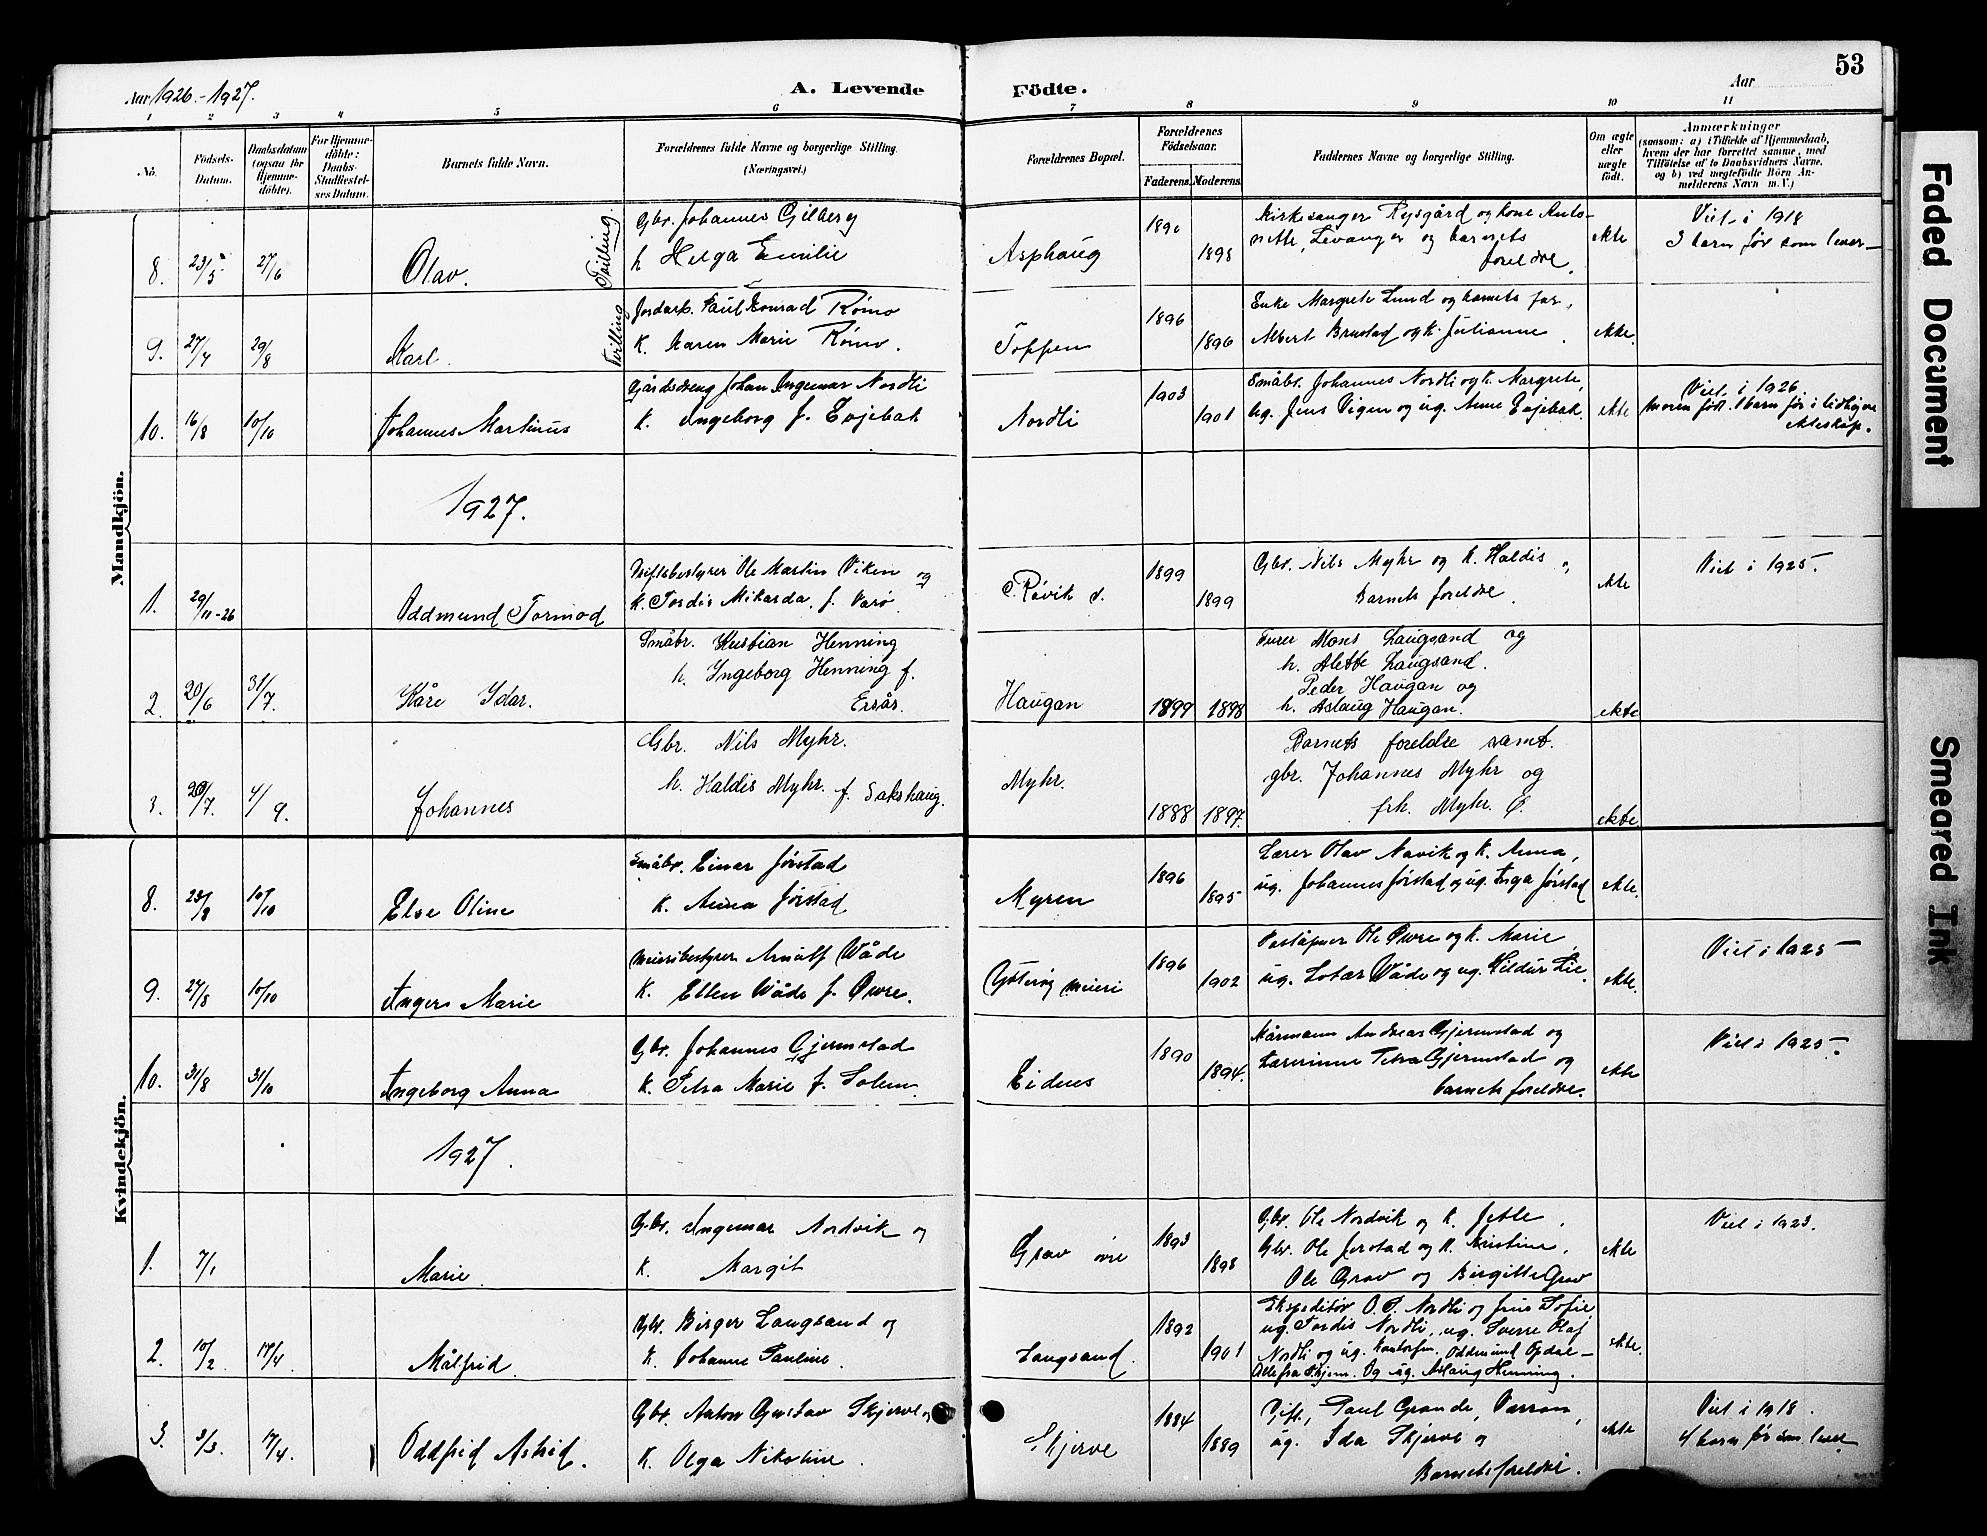 53
Aar 1926.-1927.
A. Levende
Födte.
Aar
1 2 3 4 5 6 7 8 9 10 11
No.
Födsels-
Datum.
Daabsdatum
(ogsaa for
Hjemme-
döbte).
For Hjemme-
döbte:
Daabs-
Stadfæstel-
ses Datum.
Barnets fulde Navn.
Forældrenes fulde Navne og borgerlige Stilling.
(Næringsvei.)
Forældrenes Bopæl.
Forældrenes
Födselsaar.
Faderens. Moderens.
Faddernes Navne og borgerlige Stilling.
Om ægte
eller
uægte
födt.
Anmærkninger
(saasom: a) i Tilfælde af Hjemmedaab,
hvem der har forrettet samme, med
Tilföielse af to Daabsvidners Navne,
og b) ved uægtefödte Börn An-
melderens Navn m. V.)
Mandkjön.
8. 23/5 27/6 Olav.
Tvilling.
Gbr. Johannes Gilberg
h Helga Emilie
Asphaug
1898
Kirkesanger Rysgård og kone Anto-
nette, Levanger og barnets
foreldre.
ekte
Viet i 1918
3 barn før som lever
9. 27/7 29/8 Karl.
Tvilling
Jordarb. Paul Konrad Rømo
K. Karen Marie Rømo.
Toppen
1896
1896
Enke Margrete Lund og barnets far,
Albert Brustad og k. Julianne
ekte.
10. 16/8 10/10 Johannes Martinus
Gårdsdreng Johan Ingemar Nordli
K. Ingeborg f. Exjebak
Nordli
1903
1901
Småbr. Johannes Nordli og k. Margrete,
ug. Jens Vigen og ug. Anne Exjebak.
ekte
Viet i 1926.
Moren født 1 barn før i tidligere
ekteskap.
1927.
1. 29/11-26 Oddmund Tormod
Driftsbestyrer Ole Martin Viken og
K. Tordis Mikarda, f. Varø
Røvik
1899
1899
Gbr. Nils Myhr og k. Haldis
Barnets foreldre.
ekte
Viet i 1925.
2. 20/6 31/7. Kåre Idar.
Småbr. Kristian Henning
h. Ingeborg Henning f.
Ersås.
Haugan
1899 1898
Furer Mons Laugsand og
h. Alette Laugsand.
Peder Haugan og
h. Aslaug Haugan.
ekte
3. 20/7. 4/9. Johannes
Gbr. Nils Myhr.
h. Haldis Myhr. f. Sakshaug.
Myhr.
1888 1897.
Barnets foreldre samt.
gbr. Johannes Myhr og
frk. Myhr Ø.
ekte
Kvindekjön.
8. 23/8 10/10 Else Oline
Småbr. Einar Jørstad
K. Anna Jørstad
Myren
1896
1895
Lærer Olav Navik og k. Anna,
ug. Johannes Jørstad og ug. Inga Jørstad
ekte.
9. 27/8 10/10 Ingers Marie
Meieribestyrer Arnulf Våde
K. Ellen Våde f. Øvre.
Ytterøy meieri
1896
1902
Poståpner Ole Øvre og k. Marie,
ug. Lotar Våde og ug. Hildur Lie.
ekte.
Viet i 1925
10. 31/8 31/10 Ingeborg Anna
Gbr. Johannes Gjermstad
K. Petra Marie f. Solem.
Eidnes
1890
1894.
Kårmann Andreas Gjermstad og
Lærerinne Petra Gjermstad og
barnets foreldre.
ekte
Viet i 1925.
1927.
1. 7/1 Marie.
Gbr. Ingemar Nordvik og
K. Margit
Grav øvre
1893
1898
Gbr. Ole Nordvik og k. Jette.
Gbr. Ole Jørstad og k. Kristine.
Ole Grav og Birgitte Grav
ekte
Viet i 1923.
2. 10/2 17/4 Målfrid.
Gbr. Birger Laugsand og
K. Johanne Pauline.
Laugsand.
1892
1901
Ekspeditør O. P. Nordli og frue Sofie
ug. Tordis Nordli, ug. Sverre Olaf
Nordli og ug. Oddmund Opdal
Alle fra Og ug. Aslaug Henning.
ekte.
3. 3/3. 17/4. Oddfrid Astrid.
Gbr. Anton Gustav Skjerve og
K. Olga Nikoline.
Skjerve
1884
1889
Gift, Paul Grande, Verran,
ug. Ida Skjerve og
Barnets foreldre.
ekte
Viet i 1918.
4 barn før som lever
Faded Document
Smeared Ink